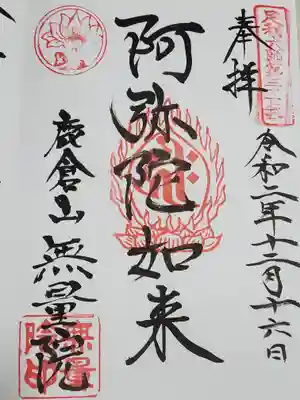 奉拝
令和二年十二月十六日
阿弥陀如来
鹿倉山 無量院